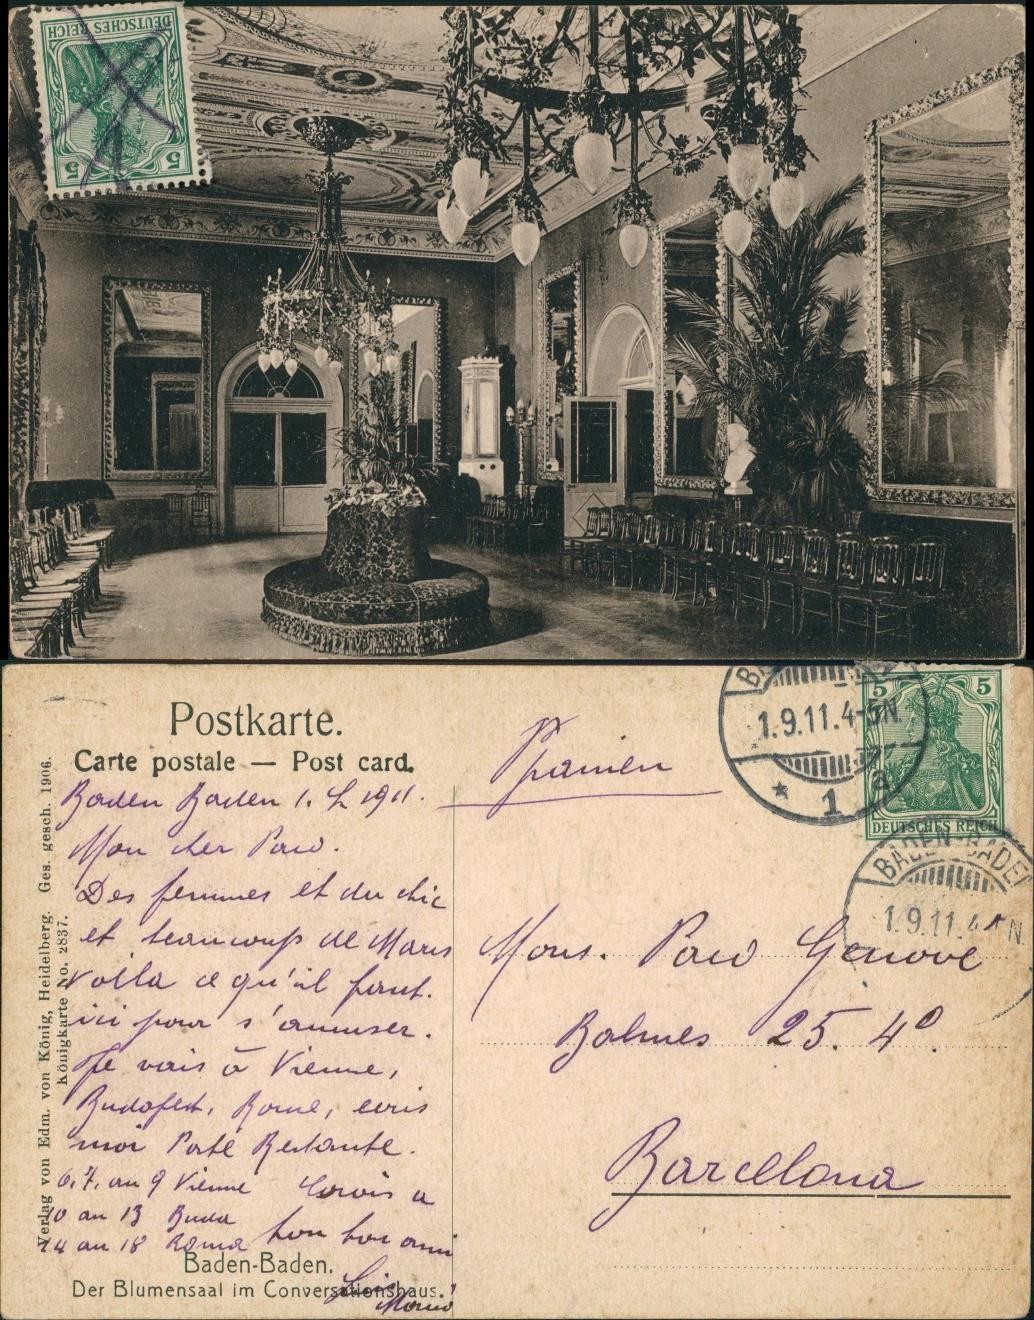 DEUTSCHES REICH
5 5
Postkarte.
Carte postale — Post card.
Baden Baden 1. 1911.
Mon cher
Des femmes et du chic
et beaucoup de Marcs
voilà ce qu'il faut
ici pour s'amuser.
Je vais à Vienne,
Budapest, Rome, ecris
moi Poste Restante.
6, 7, au 9 Vienne
10 au 13 Buda
14 au 18 Roma
bon ami
Baden-Baden.
Der Blumensaal im Conversationshaus.
Verlag von Edm. von König, Heidelberg. Ges. gesch. 1906.
Königkarte No. 2837.
Spanien
BADEN-BADEN
1.9.11.4-5N.
* 1 a
5 5
DEUTSCHES REICH
BADEN-BADEN
1.9.11.4-5N
Mons. Genové
Balmes 25. 4º.
Barcelona